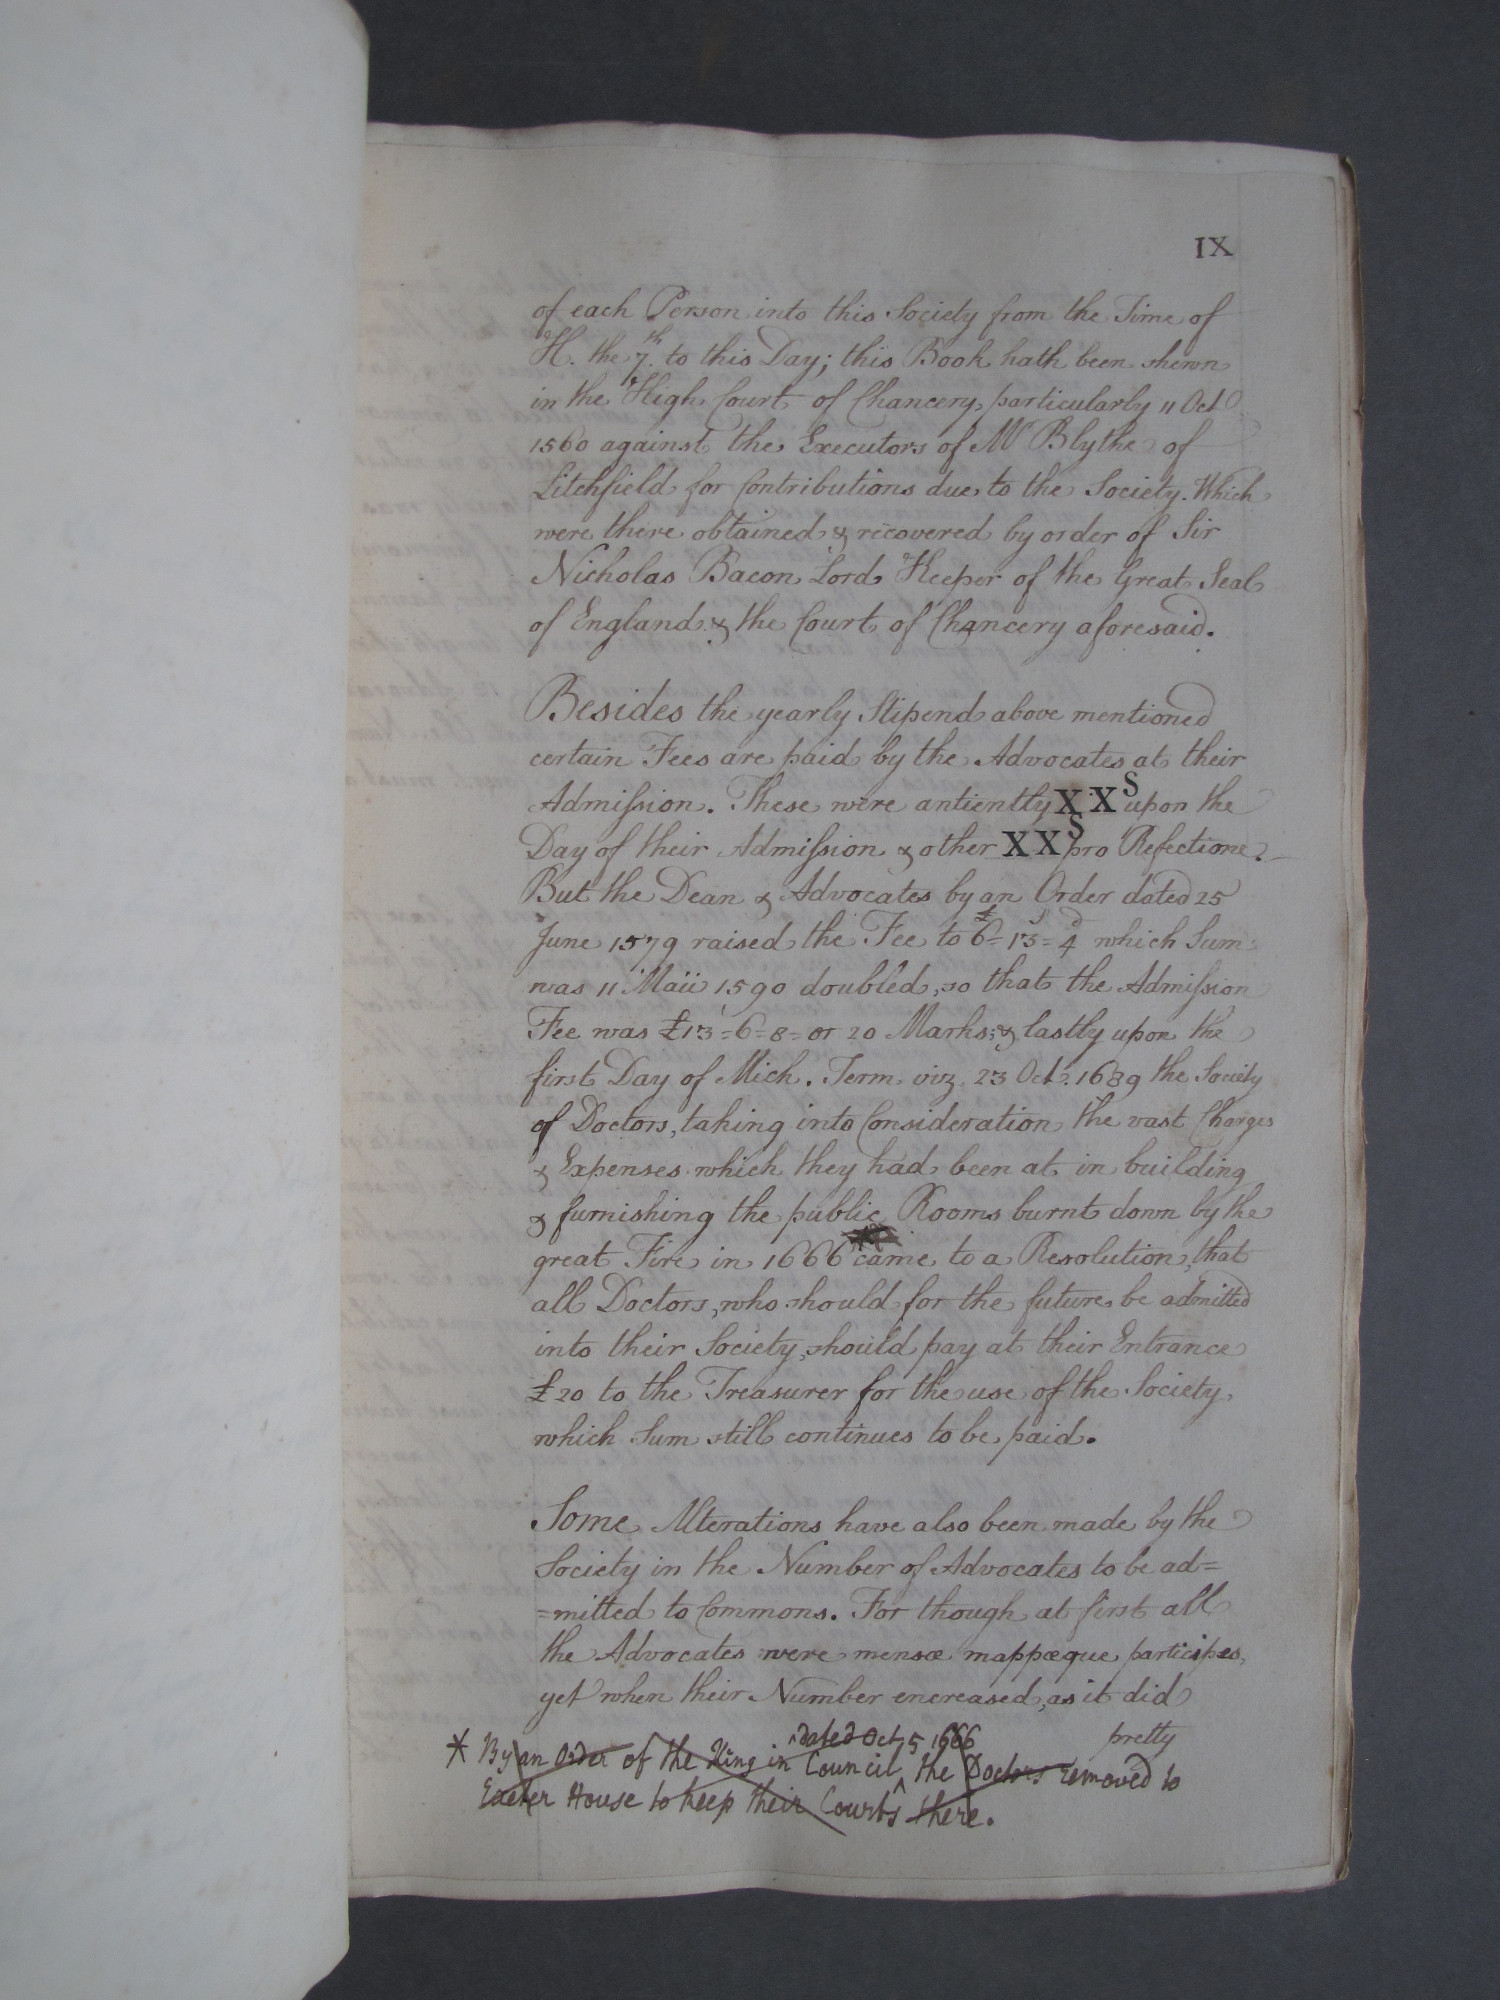 IX
of each Person into this Society from the Time of
H. the 7.th to this Day; this Book hath been shewn
in the High Court of Chancery, particularly 11 Oct
1560 against the Executors of Mr Blythe of
Litchfield for Contributions due to the Society. Which
were there obtained & recovered by order of Sir
Nicholas Bacon Lord Keeper of the Great Seal
of England & the Court of Chancery aforesaid.
Besides the yearly Stipend above mentioned
certain Fees are paid by the Advocates at their
Admission. These were antiently XXS upon the
Day of their Admission & other XXS pro Refectione.
But the Dean & Advocates by an Order dated 25
June 1579 raised the Fee to £6=13s=4d which Sum
was 11 Maii 1590 doubled, so that the Admission
Fee was £13=6=8= or 20 Marks; & lastly upon the
first Day of Mich. Term viz. 23 Oct. 1689 the Society
of Doctors, taking into Consideration the vast Charges
& Expenses which they had been at in building
& furnishing the public Rooms burnt down by the
great Fire in 1666 came to a Resolution, that
all Doctors, who should for the future be admitted
into their Society, should pay at their Entrance
£20 to the Treasurer for the use of the Society,
which Sum still continues to be paid.
Some Alterations have also been made by the
Society in the Number of Advocates to be ad=
=mitted to Commons. For though at first all
the Advocates were mensæ mappæque participes,
yet when their Number encreased, as it did
pretty
* By an Order of the King in Council ^dated Oct 5 1666 the Doctors removed to
Exeter House to keep their Courts there.